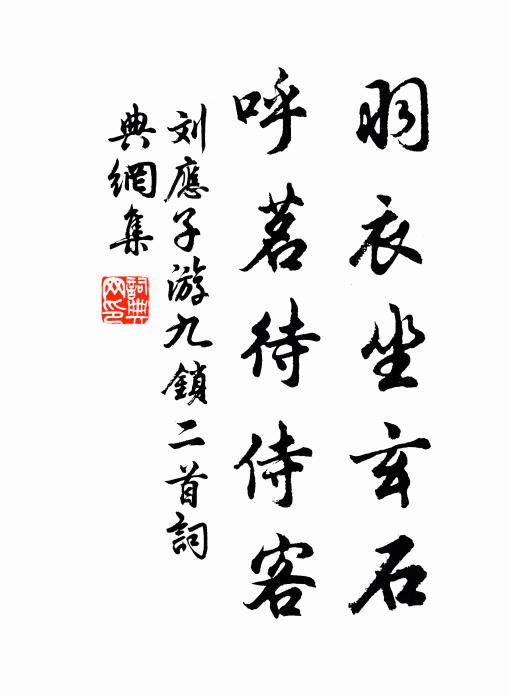 羽衣坐玄石
呼茗待侍客
刘應子游九鎖二首詞
典網集
詞典网印